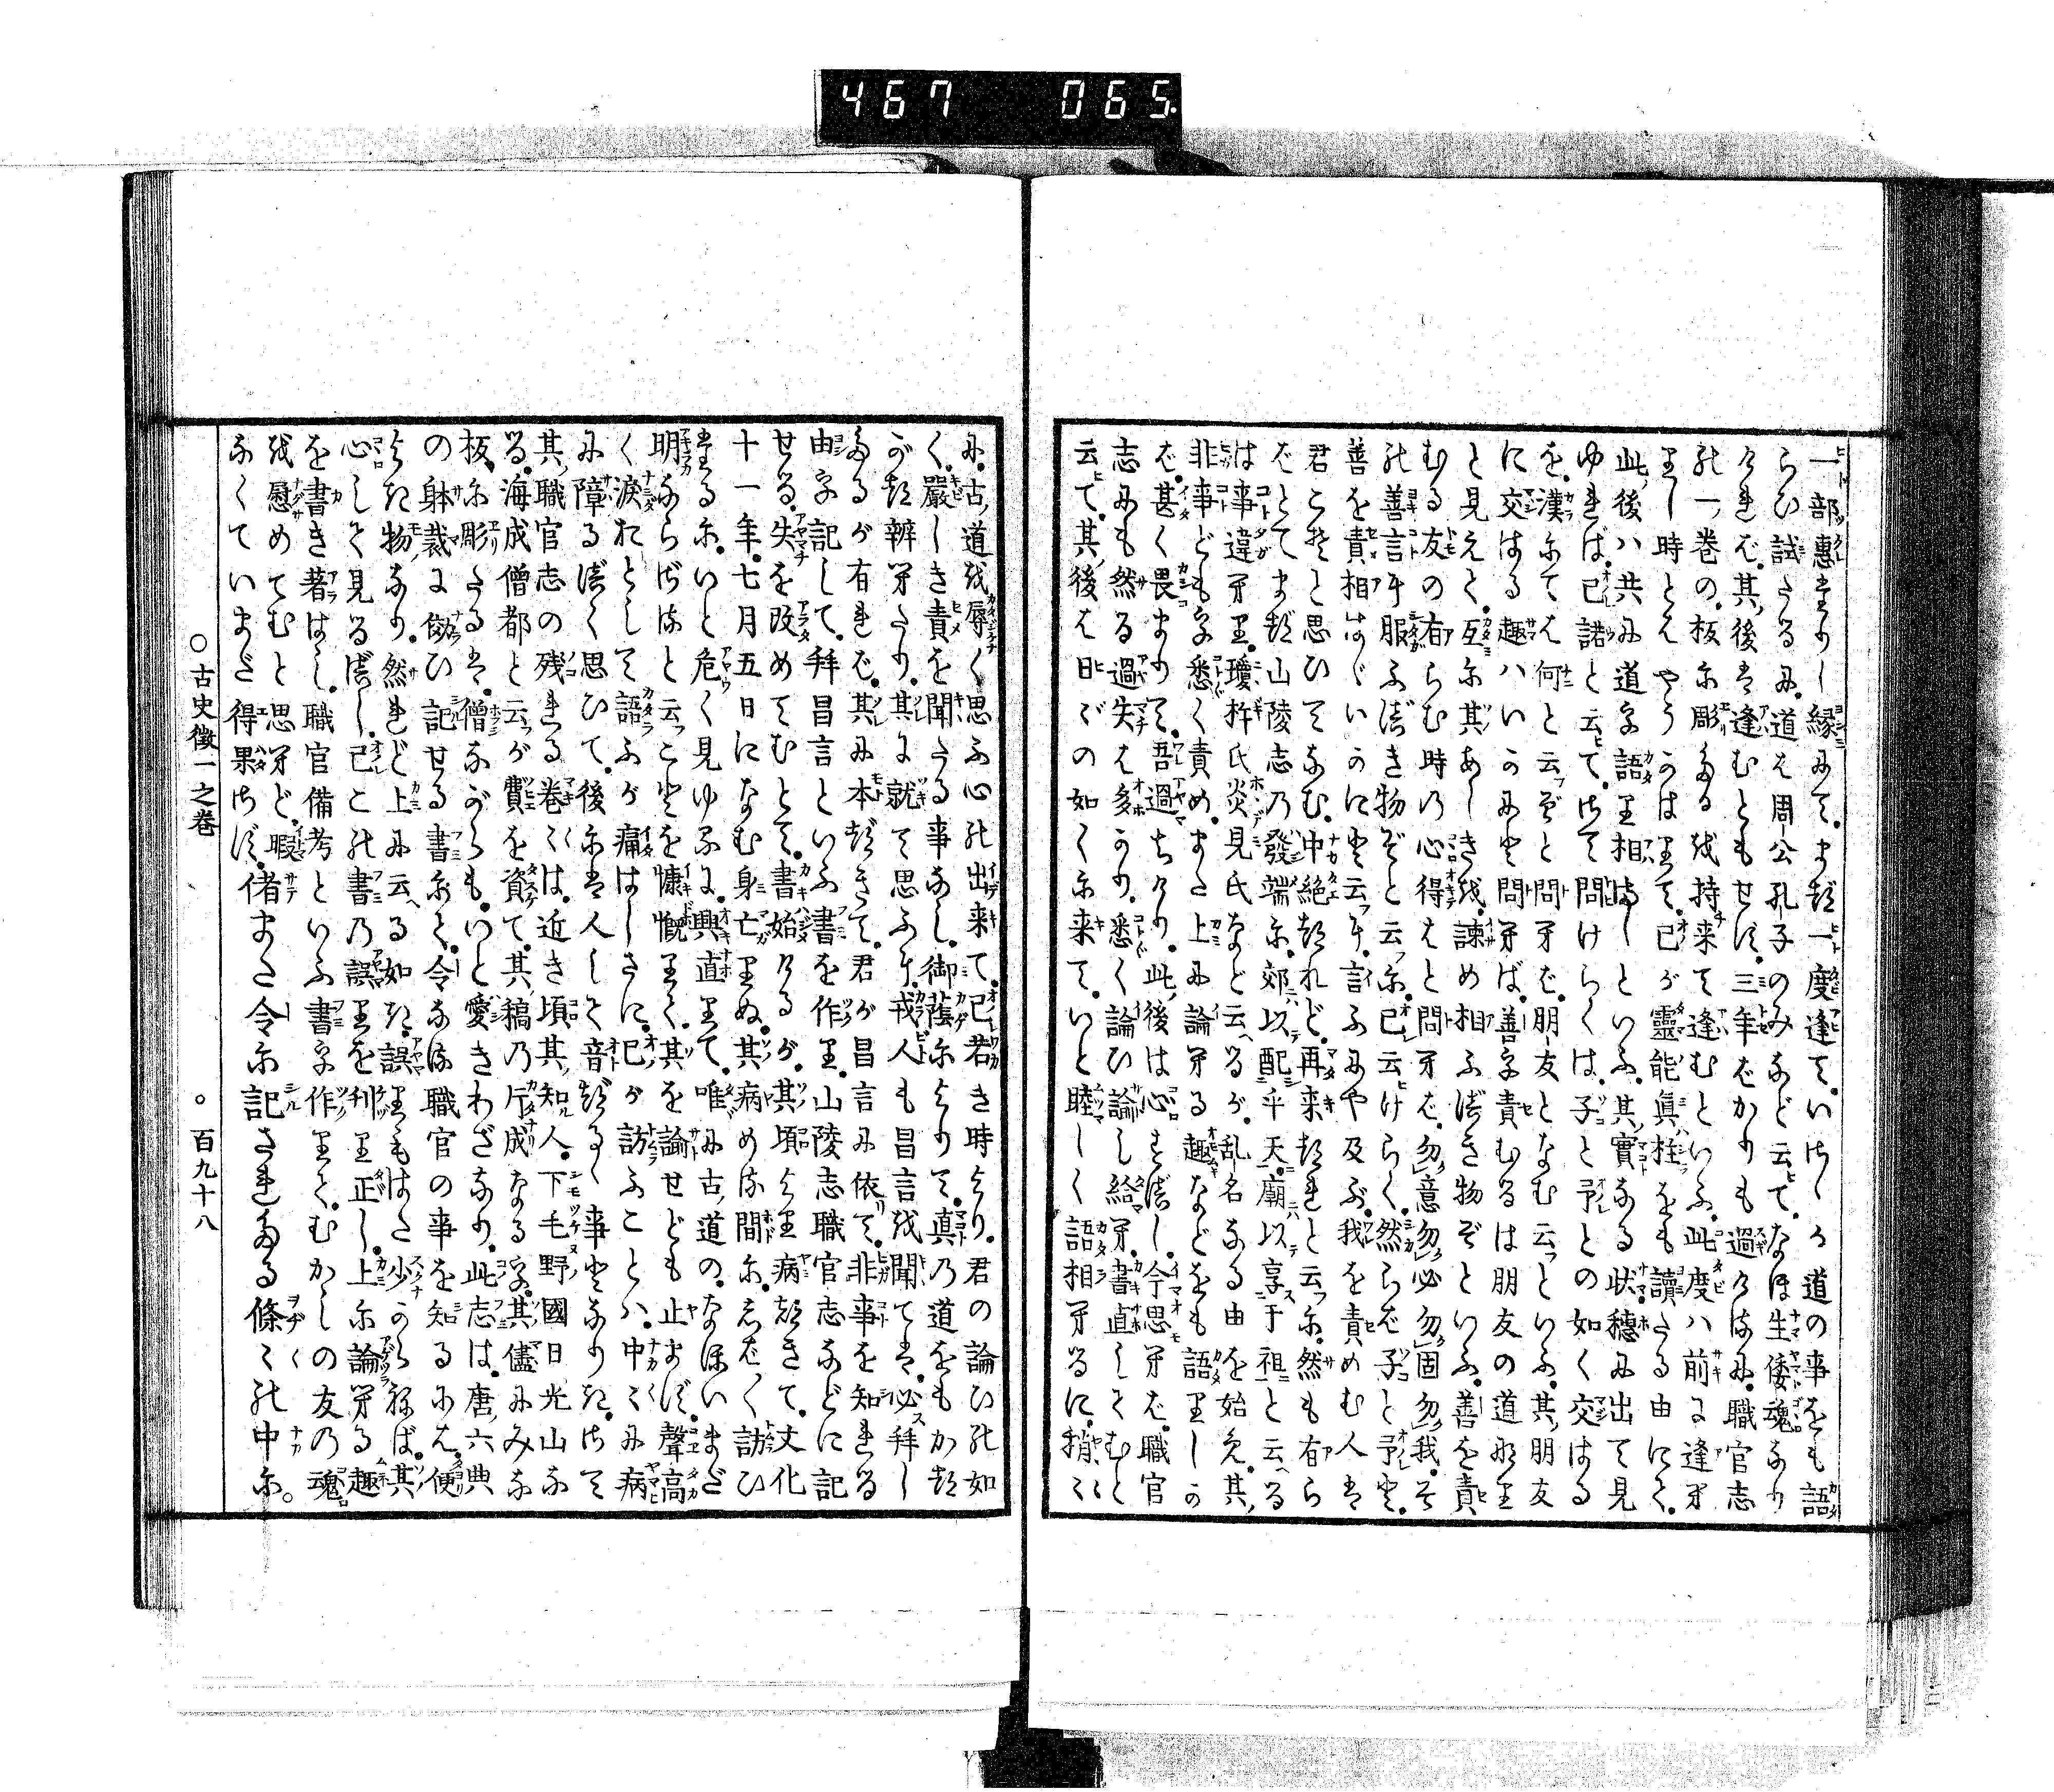 467 065
一部惠まりし縁みて。まづ一度逢て。いさゝか道の事をも語
らひ試たるに。道は周公孔子のみなど云て。なほ生倭魂なり
ければ。其後は逢むともせず。三年ばかりも過けるに。職官志
の一巻の。板に彫たる を持来て逢むといふ。此度ハ前に逢へ
りし時とは やうかはりて。己が靈能眞柱をも讀たる由にて。
此後ハ共に道を語り相ましといふ。其實なる状穂に出て見
ゆれば。己諾と云て。さて問けらくは。子と予との如く交はる
を。漢にては何と云ぞと問へば。朋友となむ云といふ。其朋友
に交はる趣ハいかにと問へば。善を責むるは朋友の道なり
と見えて。互に其あしきを。諫め相ふべき物ぞといふ。善を責
むる友の有らむ時の心得はと問へば。勿意勿必勿固勿我。そ
の善言に服ふべき物ぞと云に。己云けらく。然らば子と予と。
善を責相はゞいかにと云に。言ふにや及ぶ。我を責めむ人は
君こそと思ひてなむ。中絶たれど。再来たれと云に。然も有ら
ばとてまづ山陵志の發端に。郊以配乎天。廟以享于祖と云る
は事違へり。瓊杵氏炎見氏など云るが。乱名なる由を始め。其
非事どもを悉く責め。また上に論へる趣などをも語りしか
ば。甚く畏まりて。吾過ちけり。此後は心すべし。今思へば。職官
志にも然る過失は多かり。悉く論ひ論し給へ。書直してむと
云て。其後は日ごの如くに来て。いと睦しく語相へるに。稍々
に。古道を辱く思ふ心の出来て。己若き時より。君の論ひの如
く。嚴しき責を聞たる事なし。御蔭によりて。真の道をもかつ
がつ辨へたり。其に就て思ふに。我人も昌言を聞ては。必拜し
たるが有れば。其に本づきて。君が昌言に依て。非事を知れる
由を記して。拜昌言といふ書を作り。山陵志職官志などに記
せる。失を改めてむとて。書始けるが。其頃より病つきて。文化
十一年。七月五日になむ身亡りぬ。其病める間に。しばしば訪ひ
たるに。いと危く見ゆるに。興直りて。唯に古道の。なほいまだ
明ならざると云ことを慷慨りて。其を論せども止まず。聲高
く涙おとして語ふが痛はしさに。己が訪ふことハ。中々に病
に障るべく思ひて。後には人して音づるゝ事となりたり。さて
其職官志の残れる巻々は。近き頃其知人。下毛野國日光山な
る。海成僧都と云が費を資て。其稿の片成なるを。其儘にみな
板に彫たるは。僧ながらも。いと愛きわざなり。此志は。唐六典
の躰裁に傚ひ記せる書にて。令なる職官の事を知るには。便
よき物なり。然れど上に云る如き。誤りもはた少からねば。其
心して見るべし。己この書の誤りを刊り正し。上に論へる趣
を書き著はし。職官備考といふ書を作りて。むかしの友の魂
を慰めてむと思へど。暇なくていまだ得果さず。偖また令に記されたる條々の中に。
○古史徴一之巻 ○百九十八